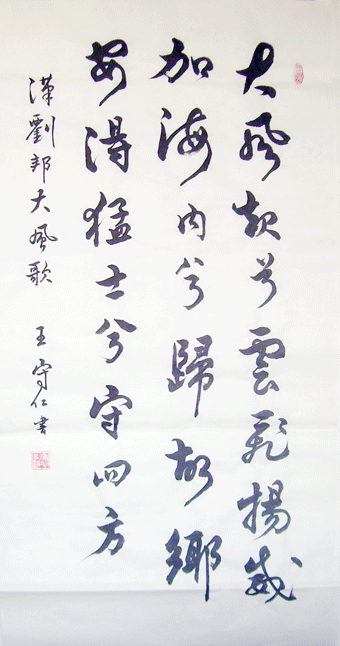 大風起兮雲飛揚威
加海内兮歸故鄉
安得猛士兮守四方
漢劉邦大風歌 王守仁書